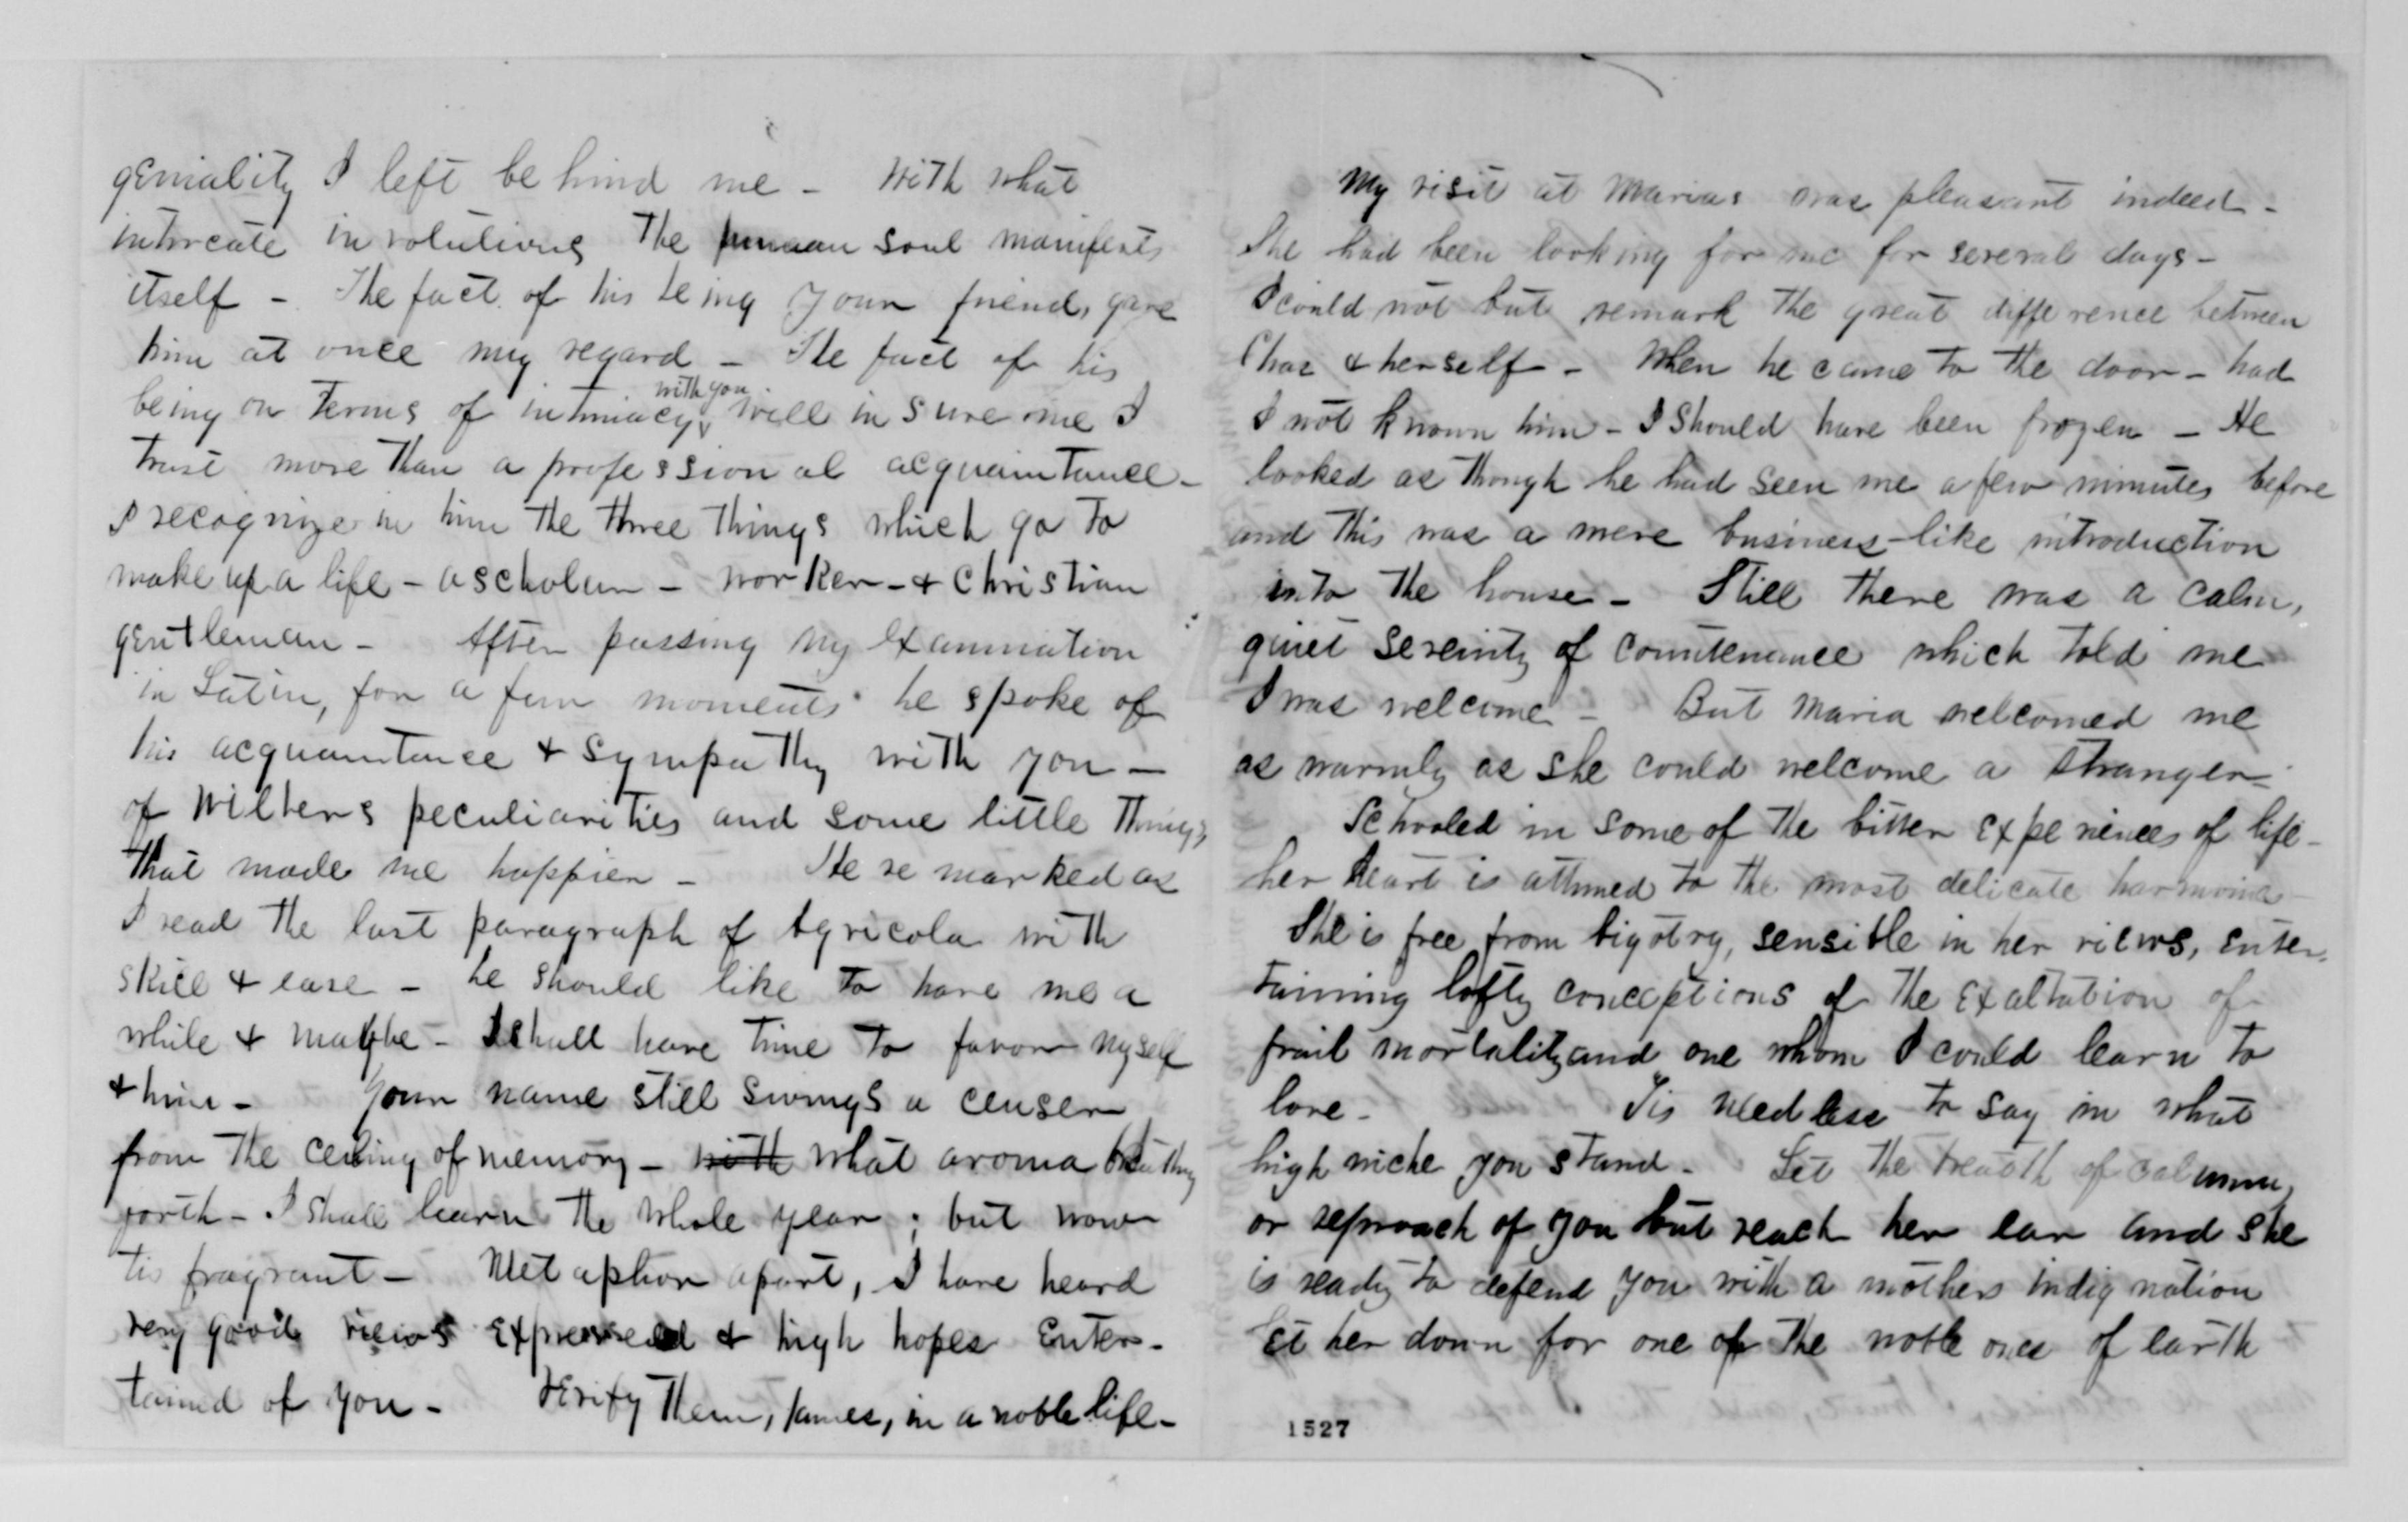 geniality I left behind me - With what
intricate involutions the human soul manifests
itself - The fact of his being your friend, gave
him at once my regard - The fact of his
with you
being on terms of intimacy, will insure me I
trust more than a professional acquaintance -
I recognize in him the three things which go to
make up a life - a scholar - worker - & Christian
gentleman - After passing my examination
in Latin, for a few moments he spoke of
his acquaintance & sympathy with you -
of Wilbers peculiarities and some little things,
that made me happier - He remarked as
I read the last paragraph of Agricola with
skill & ease - he should like to have me a
while & maybe - I shall have time to favor myself
& him - Your name still swings a censer
from the ceiling of memory - with what aroma breathing
forth - I shall learn the whole year; but now
tis fragrant - Metaphor apart, I have heard
very good views expressed & high hopes enter-
tained of you - Verify them, James, in a noble life -
My visit at Marias was pleasant indeed -
She had been looking for me for several days -
I could not but remark the great difference between
Chas & herself - When he came to the door - had
I not known him - I should have been frozen - He
looked as though he had seen me a few minutes before
and this was a mere business-like introduction
into the house - Still there was a calm,
quiet serenity of countenance which told me
I was welcome - But Maria welcomed me
as warmly as she could welcome a stranger -
Schooled in some of the bitter experiences of life -
her heart is attuned to the most delicate harmonies
She is free from bigotry, sensible in her views, enter-
taining lofty conceptions of the exaltation of
frail mortality and one whom I could learn to
love - Tis needless to say in what
high niche you stand - Let the breath of calumny
or reproach of you but reach her ear and she
is ready to defend you with a mothers indignation
Set her down for one of the noble ones of earth
1527